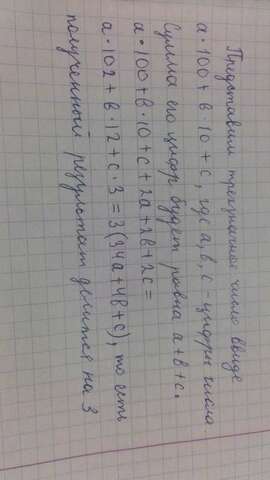 Представим трехзначное число ввиде
a·100+в·10+c, где a,в,c - цифры числа.
Сумма его цифр будет равна a+в+c.
a·100+в·10+c+2a+2в+2c=
a·102+в·12+c·3=3(34a+4в+c), то есть
полученный результат делится на 3